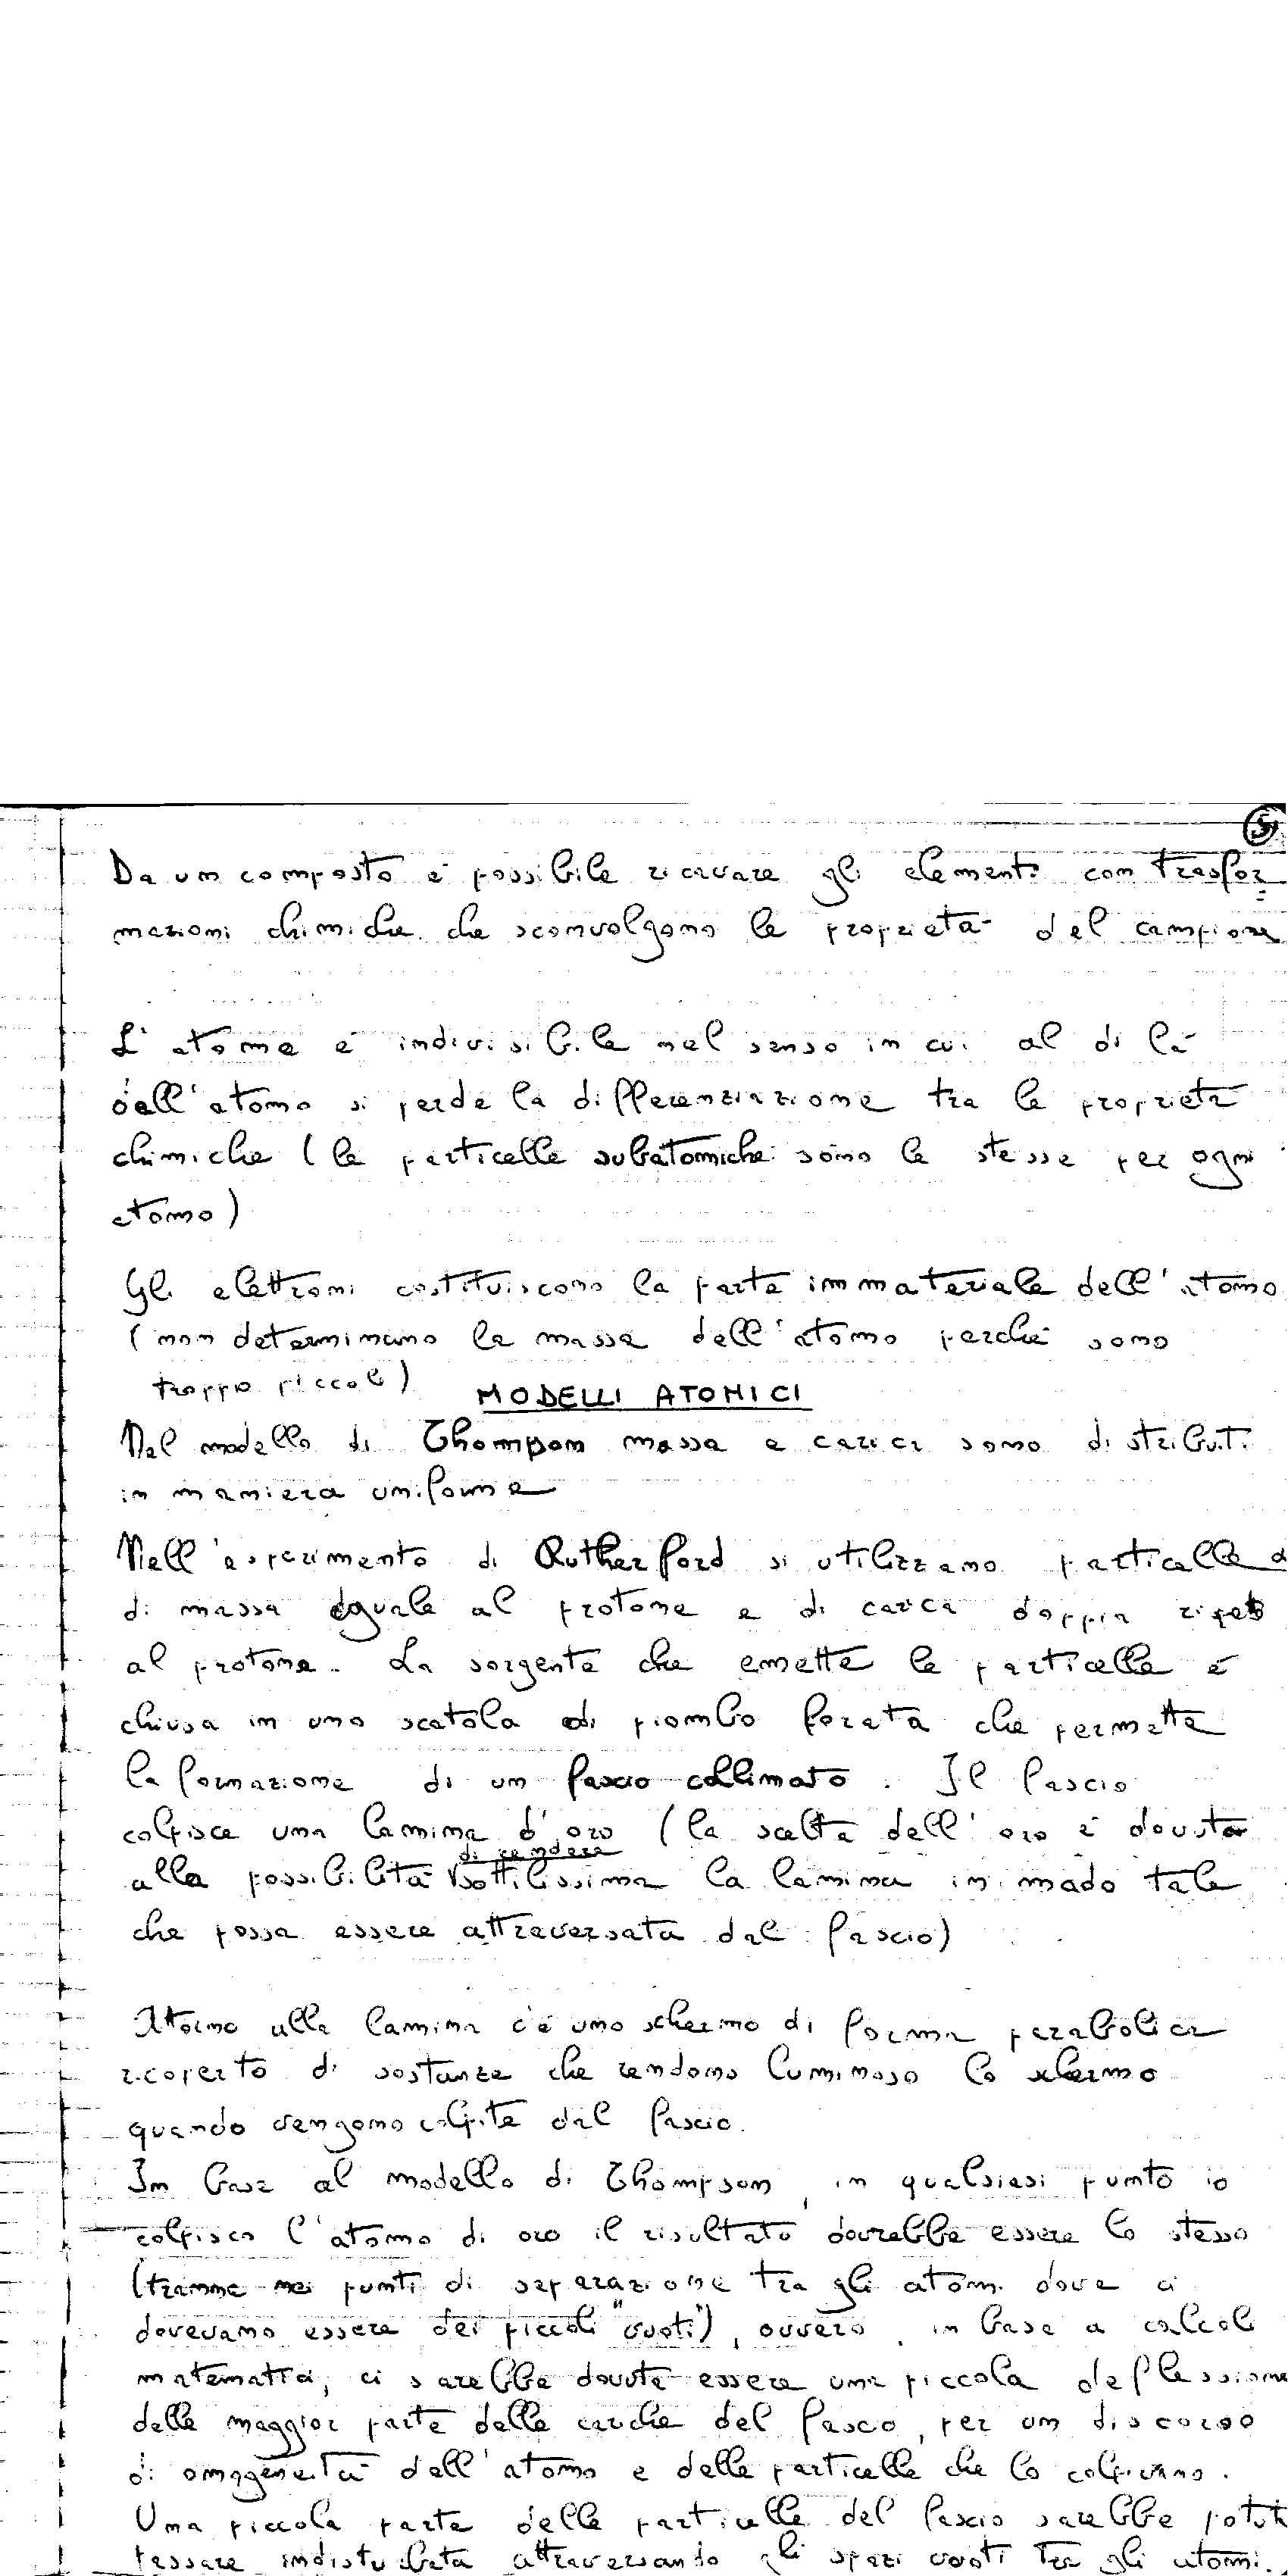 5
Da un composto è possibile ricavare gli elementi con trasfor=
mazioni chimiche che sconvolgono le proprietà del campione
L'atomo è indivisibile nel senso in cui al di là
dell'atomo si perde la differenziazione tra le proprietà
chimiche (le particelle subatomiche sono le stesse per ogni
atomo)
Gli elettroni costituiscono la parte immateriale dell'atomo
(non determinano la massa dell'atomo perché sono
troppo piccoli)
MODELLI ATOMICI
Nel modello di Thompson massa e carica sono distribuiti
in maniera uniforme
Nell'esperimento di Rutherford si utilizzano particelle α
di massa eguale al protone e di carica doppia
al protone. La sorgente che emette le particelle è
chiusa in una scatola di piombo forata che permette
la formazione di un fascio collimato. Il fascio
colpisce una lamina d'oro (la scelta dell'oro è dovuta
di rendere
alla possibilità sottilissima la lamina in modo tale
che possa essere attraversata dal fascio)
Attorno alla lamina c'è uno schermo di forma parabolica
ricoperto di sostanze che rendono luminoso lo schermo
quando vengono colpite dal fascio.
In base al modello di Thompson, in qualsiasi punto io
colpisca l'atomo di oro il risultato dovrebbe essere lo stesso
(tranne nei punti di separazione tra gli atomi dove ci
dovevano essere dei piccoli "vuoti"), ovvero, in base a calcoli
matematici, ci sarebbe dovuta essere una piccola deflessione
delle maggior parte delle cariche del fascio, per un discorso
di omogeneità dell'atomo e delle particelle che lo colpivano.
Una piccola parte delle particelle del fascio sarebbe
passare indisturbata attraversando gli spazi vuoti tra gli atomi.